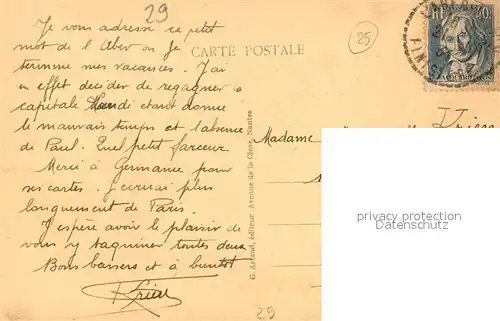 29
25
CARTE POSTALE
RF
JACQUARD
FINIS
Je vous adresse ce petit
mot de l'Aber où je
termine mes vacances. J'ai
en effet décidé de regagner la
capitale lundi étant donné
le mauvais temps et l'absence
de Paul. Quel petit farceur
Merci à Germaine pour
ses cartes. J'écrirai plus
longuement de Paris.
J'espère avoir le plaisir de
vous y taquiner toutes deux
Bons baisers et à bientôt
Madame
G. Artaud, éditeur Avenue de la Close, Nantes
29
privacy protection
Datenschutz